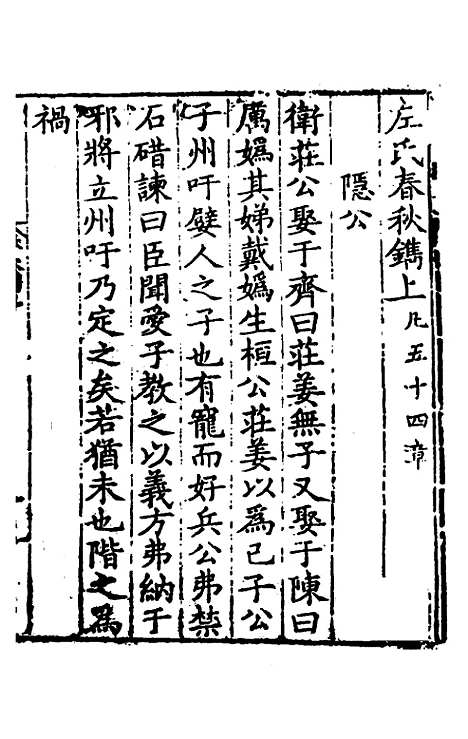 左氏春秋鐫上凡五十四章
隱公
衛莊公娶于齊曰莊姜無子又娶于陳曰
厲嬀其娣戴嬀生桓公莊姜以爲己子公
子州吁嬖人之子也有寵而好兵公弗禁
石碏諫曰臣聞愛子教之以義方弗納于
邪將立州吁乃定之矣若猶未也階之爲
禍